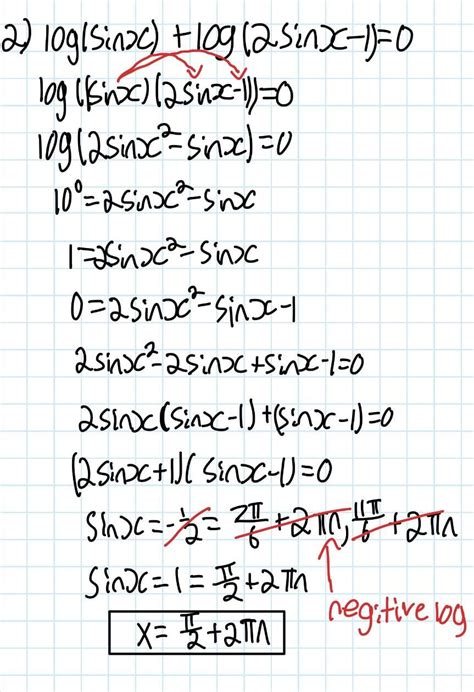 2) log(sinx) + log(2sinx-1)=0
log((sinx)(2sinx-1))=0
log(2sinx²-sinx)=0
10⁰=2sinx²-sinx
1=2sinx²-sinx
0=2sinx²-sinx-1
2sinx²-2sinx+sinx-1=0
2sinx(sinx-1)+(sinx-1)=0
(2sinx+1)(sinx-1)=0
sinx=-1/2=7π/6+2πn, 11π/6+2πn
sinx=1=π/2+2πn
negitive log
x=π/2+2πn